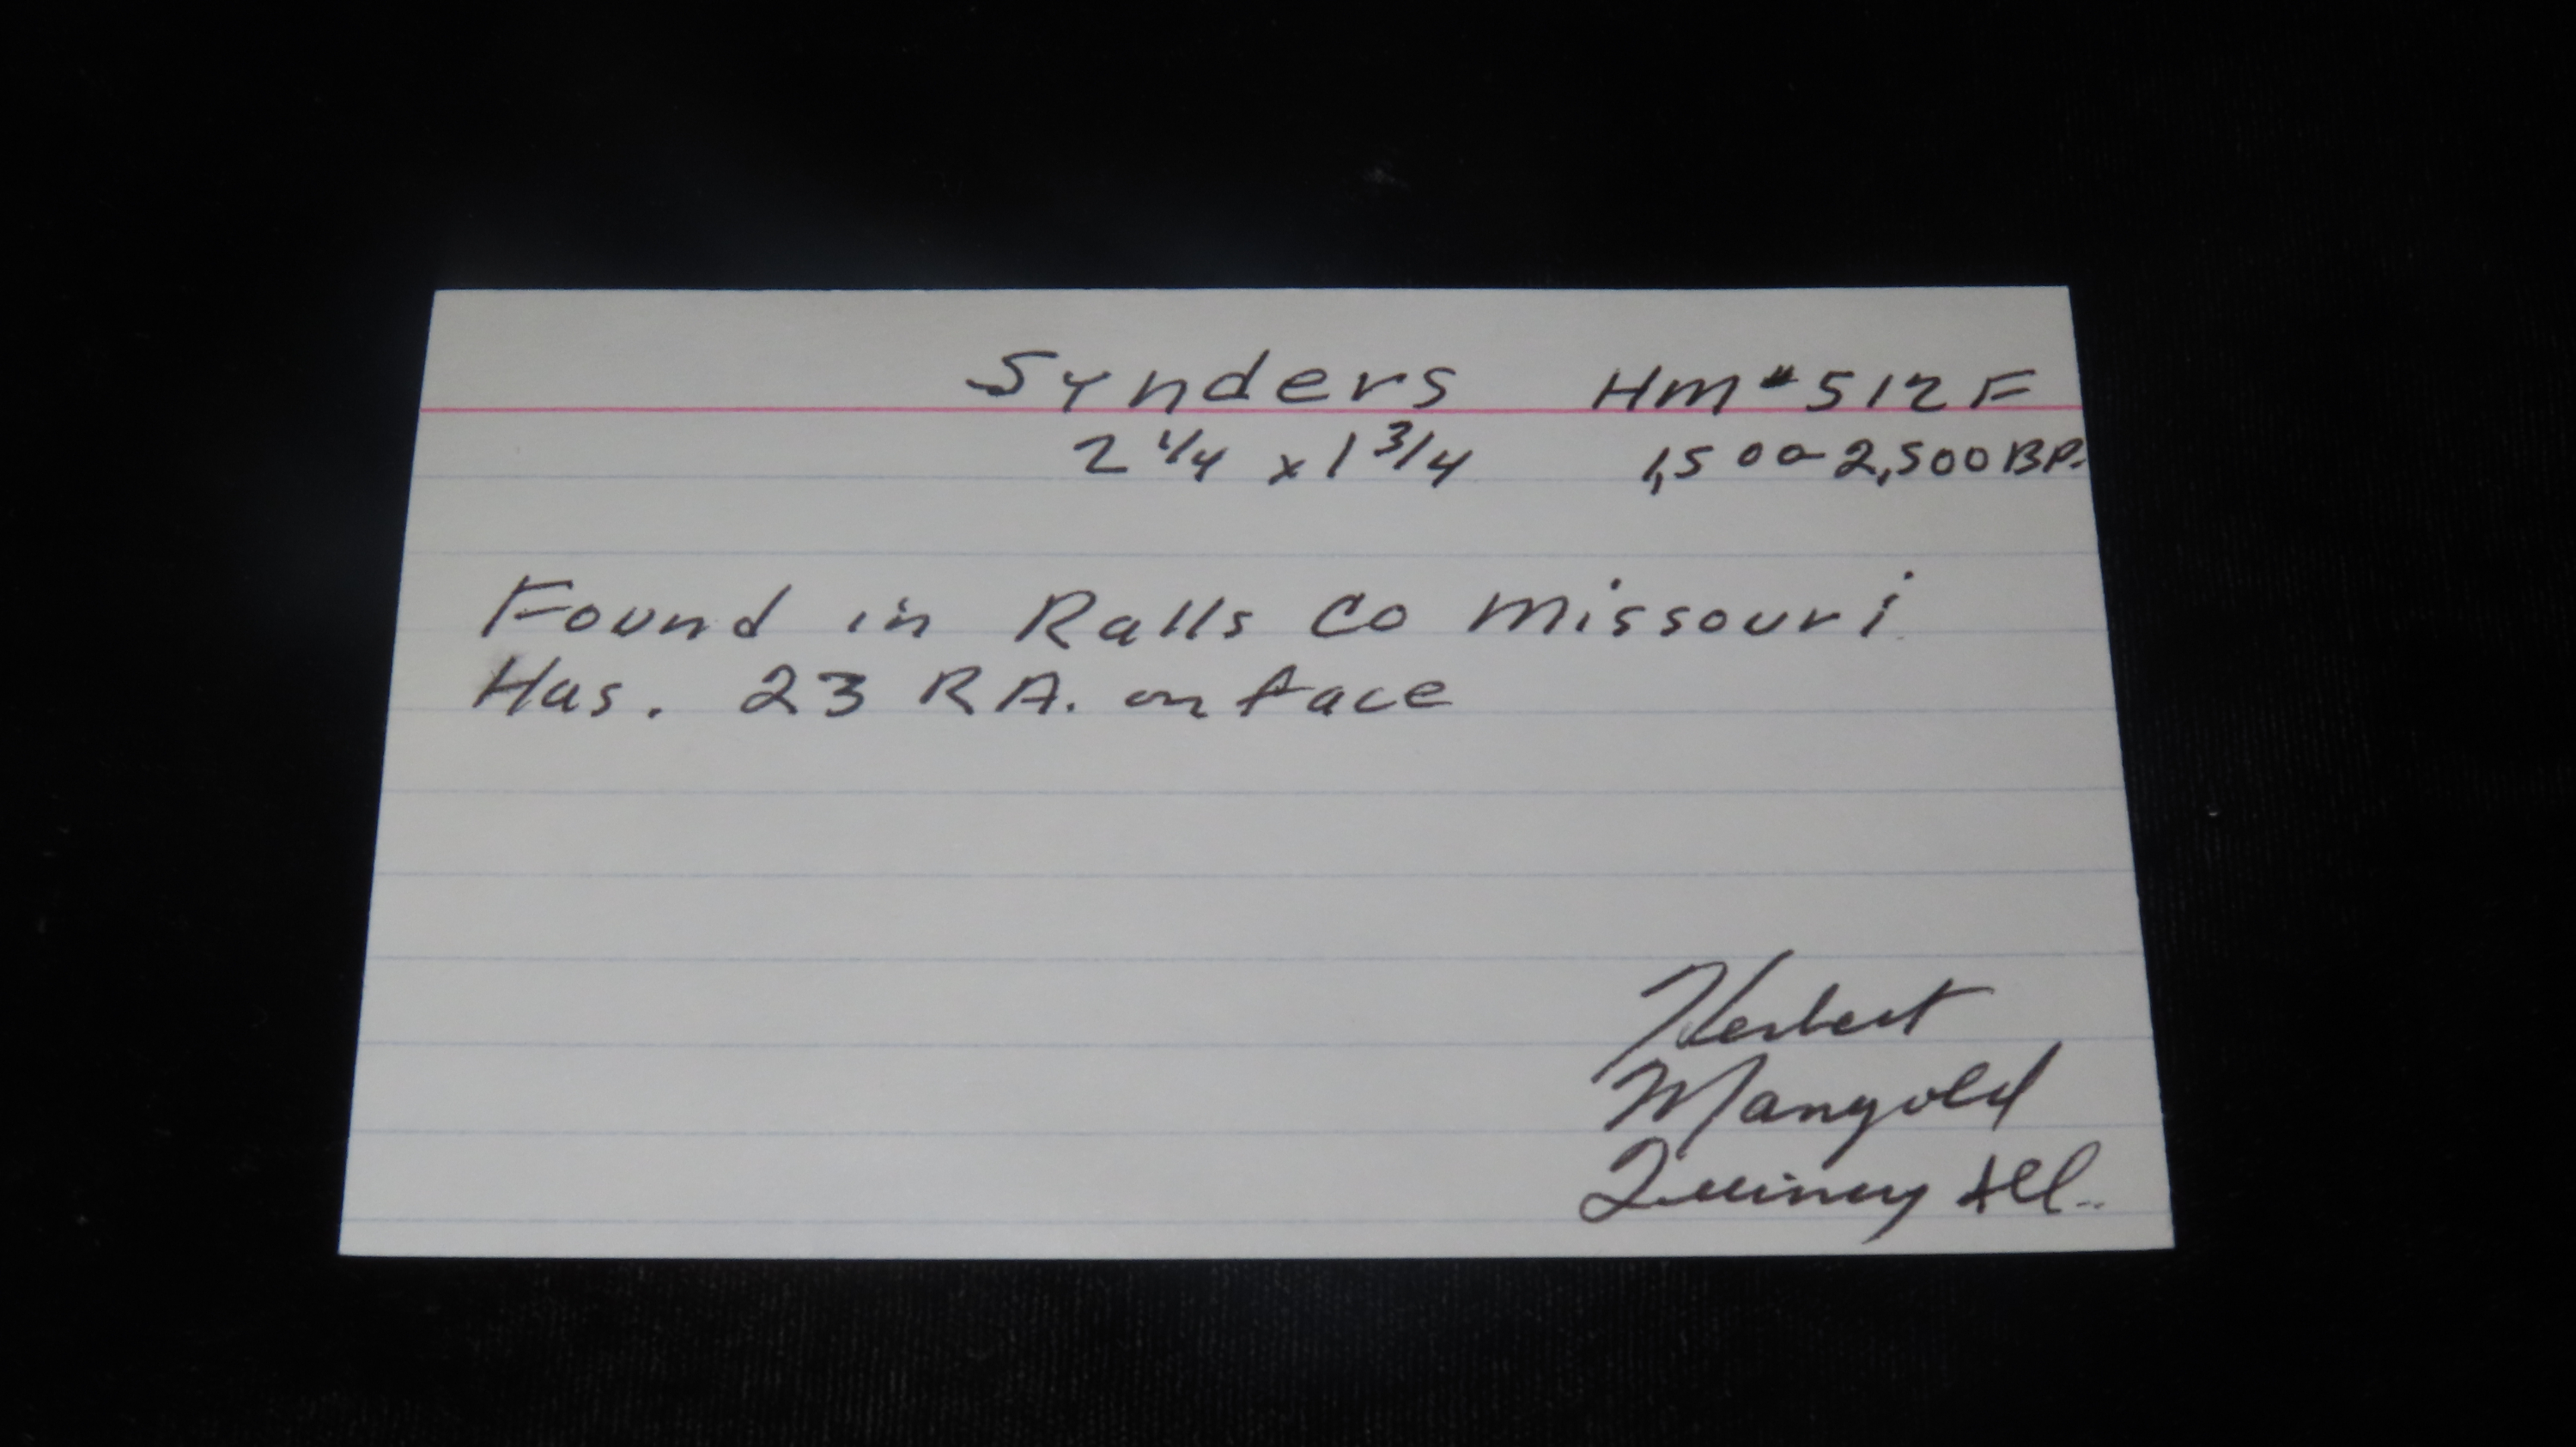 Synders HM#512F
2 1/4 x 1 3/4 1,500-2,500 BP.
Found in Ralls Co Missouri
Has. 23 RA. on face
Herbert
Mangold
Quincy Ill.